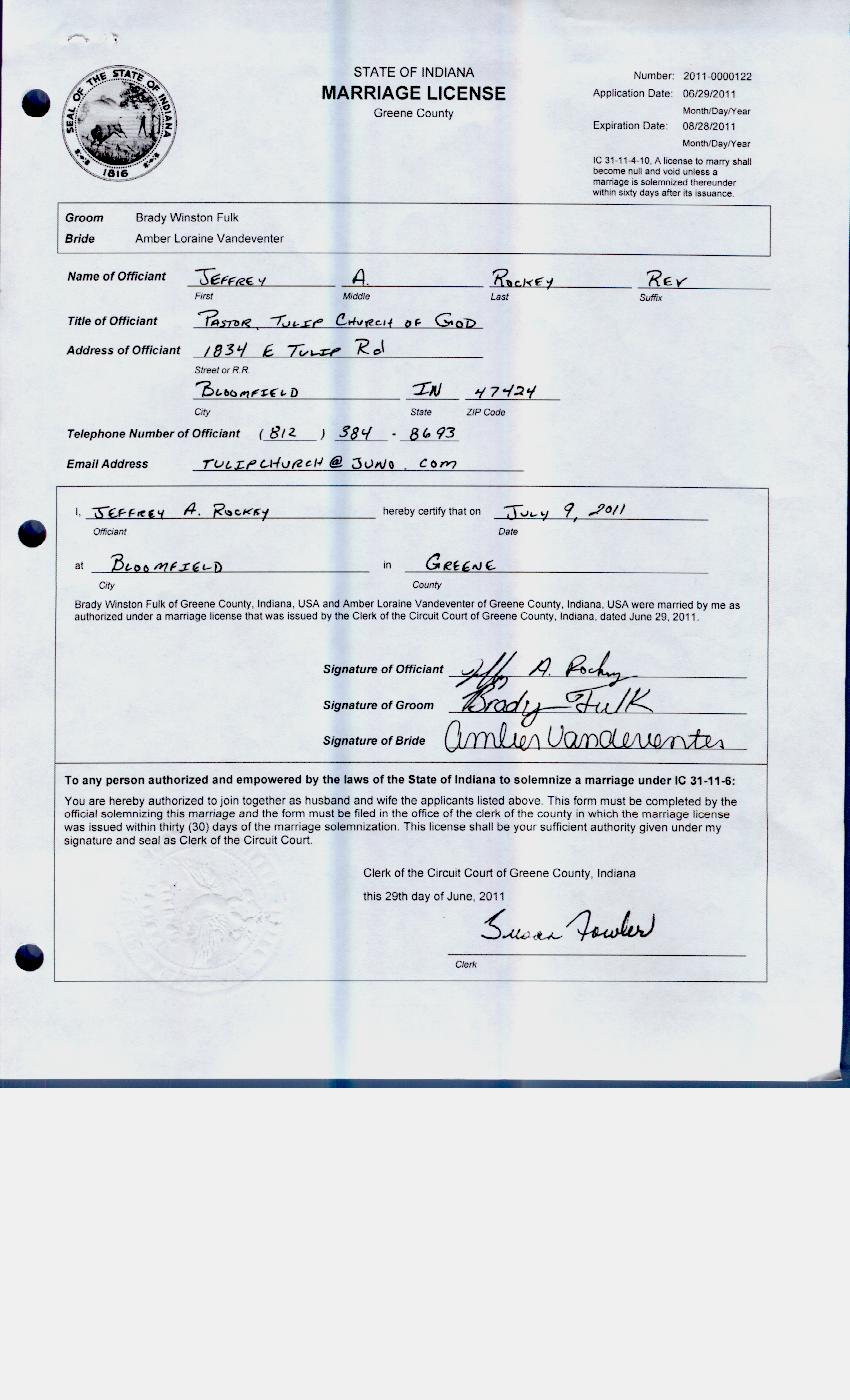 SEAL OF THE STATE OF INDIANA
1816
STATE OF INDIANA
MARRIAGE LICENSE
Greene County
Number: 2011-0000122
Application Date: 06/29/2011
Month/Day/Year
Expiration Date: 08/28/2011
Month/Day/Year
IC 31-11-4-10, A license to marry shall
become null and void unless a
marriage is solemnized thereunder
within sixty days after its issuance.
Groom Brady Winston Fulk
Bride Amber Loraine Vandeventer
Name of Officiant JEFFREY A. ROCKEY REV
First Middle Last Suffix
Title of Officiant PASTOR, TULIP CHURCH OF GOD
Address of Officiant 1834 E TULIP Rd
Street or R.R.
BLOOMFIELD IN 47424
City State ZIP Code
Telephone Number of Officiant (812) 384 - 8693
Email Address TULIPCHURCH@JUNO.COM
I, JEFFREY A. ROCKEY hereby certify that on JULY 9, 2011
Officiant Date
at BLOOMFIELD in GREENE
City County
Brady Winston Fulk of Greene County, Indiana, USA and Amber Loraine Vandeventer of Greene County, Indiana, USA were married by me as
authorized under a marriage license that was issued by the Clerk of the Circuit Court of Greene County, Indiana, dated June 29, 2011.
Signature of Officiant A. Rockey
Signature of Groom Brady Fulk
Signature of Bride Amber Vandeventer
To any person authorized and empowered by the laws of the State of Indiana to solemnize a marriage under IC 31-11-6:
You are hereby authorized to join together as husband and wife the applicants listed above. This form must be completed by the
official solemnizing this marriage and the form must be filed in the office of the clerk of the county in which the marriage license
was issued within thirty (30) days of the marriage solemnization. This license shall be your sufficient authority given under my
signature and seal as Clerk of the Circuit Court.
Clerk of the Circuit Court of Greene County, Indiana
this 29th day of June, 2011
Susan Fowler
Clerk